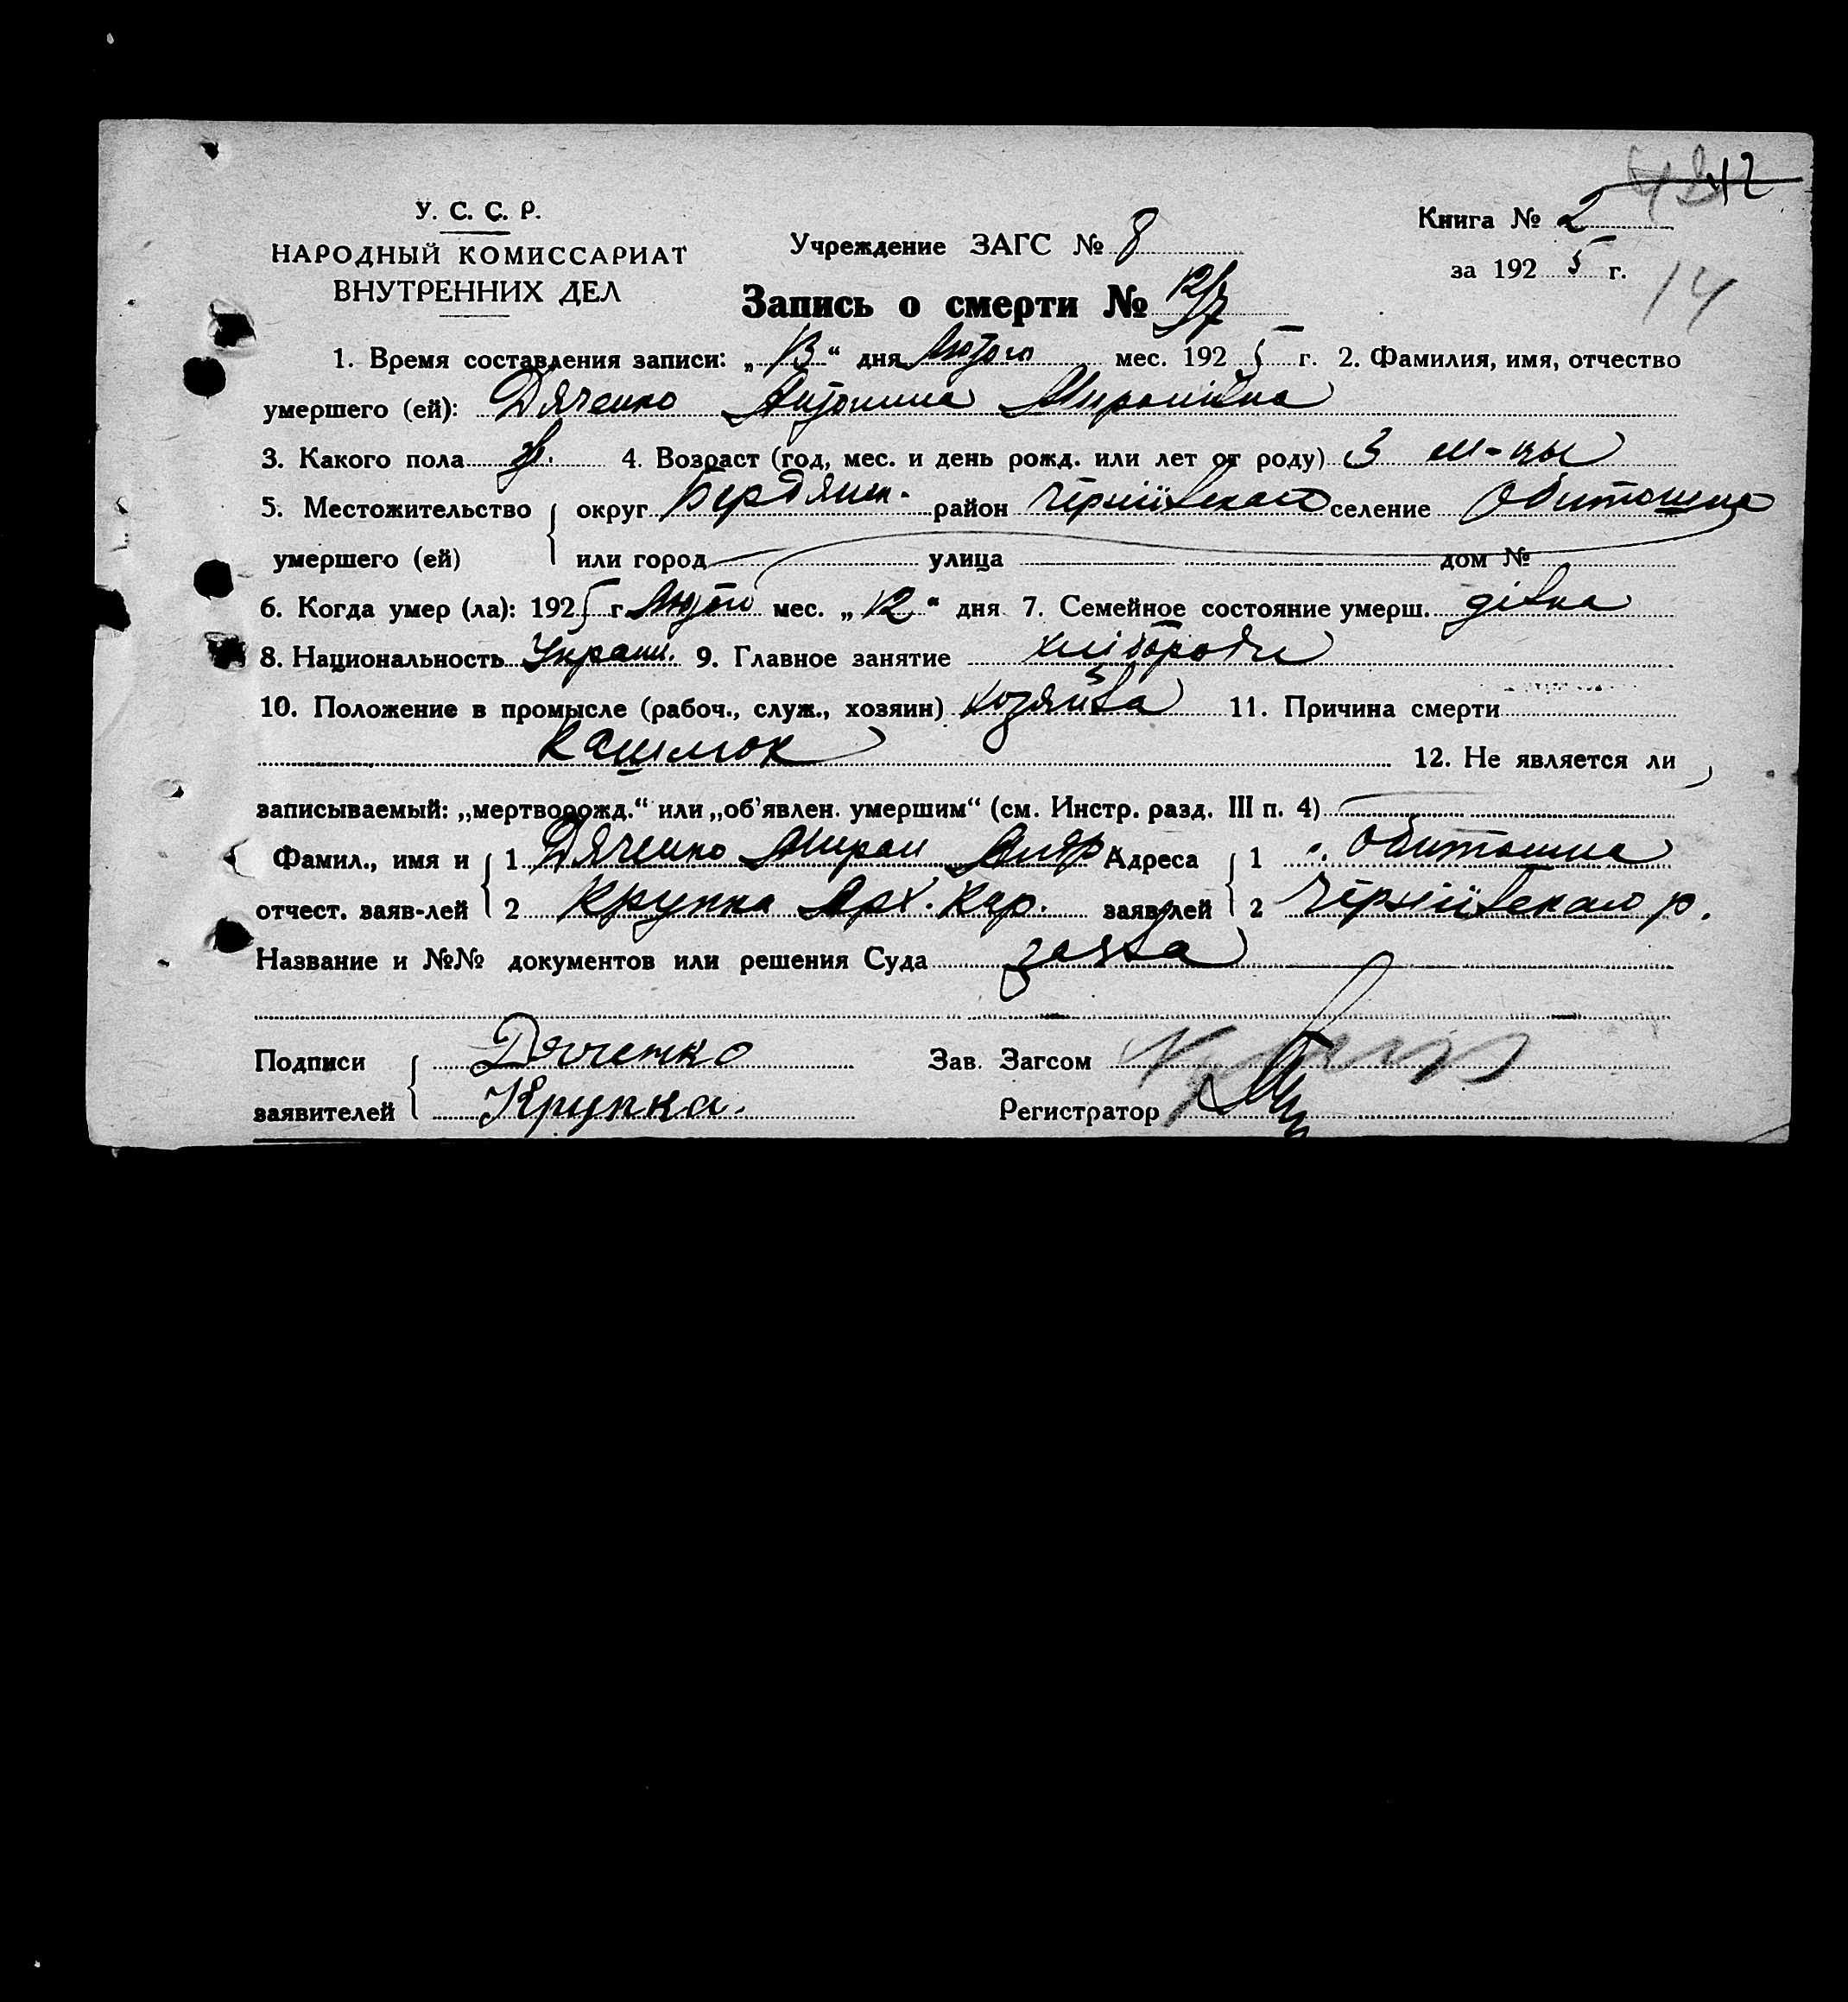 42
У. С. С. Р.
НАРОДНЫЙ КОМИССАРИАТ
ВНУТРЕННИХ ДЕЛ
Учреждение ЗАГС № 8
Книга № 2
за 1925 г.
14
Запись о смерти № 12/7
1. Время составления записи: „13“ дня Лютого мес. 1925 г. 2. Фамилия, имя, отчество
умершего (ей): Дяченко Антонина Миронівна
3. Какого пола ж. 4. Возраст (год, мес. и день рожд. или лет от роду) 3 м-цы
5. Местожительство округ Бердянск. район Чернiiвского селение Обиточна
умершего (ей) или город улица дом №
6. Когда умер (ла): 1925 г. Лютого мес. „12“ дня 7. Семейное состояние умерш. дівка
8. Национальность Украин. 9. Главное занятие хліборобы
10. Положение в промысле (рабоч., служ., хозяин) хозяйва 11. Причина смерти
кашлюк 12. Не является ли
записываемый: „мертворожд.“ или „об'явлен. умершим“ (см. Инстр. разд. III п. 4)
Фамил., имя и 1 Дяченко Мирон Адреса 1 с. Обиточна
отчест. заяв-лей 2 Крупка Арх. Кар. заяв-лей 2 Чернiiвского р.
Название и №№ документов или решения Суда заява
Подписи Дяченко Зав. Загсом
заявителей Крупка. Регистратор